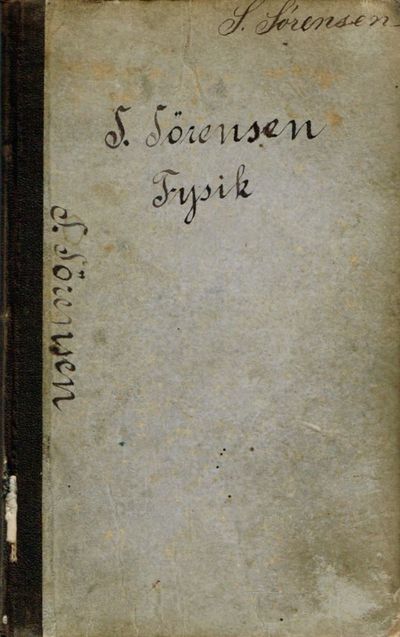 S. Sörensen
S. Sörensen
Fysik
S. Sörensen